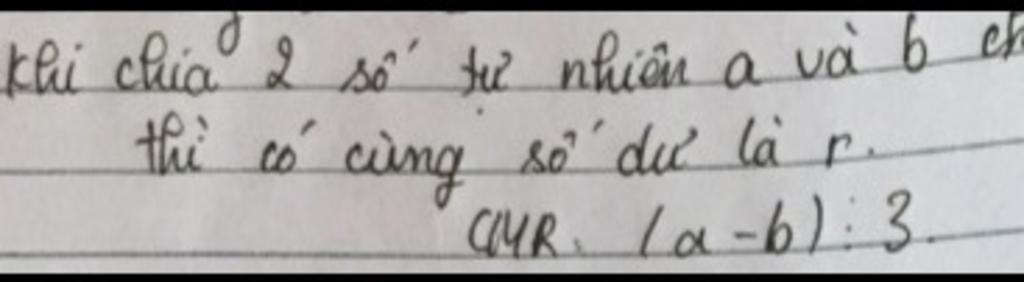 Khi chia 2 số tự nhiên a và b ch
thì có cùng số dư là r.
CMR. (a-b) ⋮ 3.